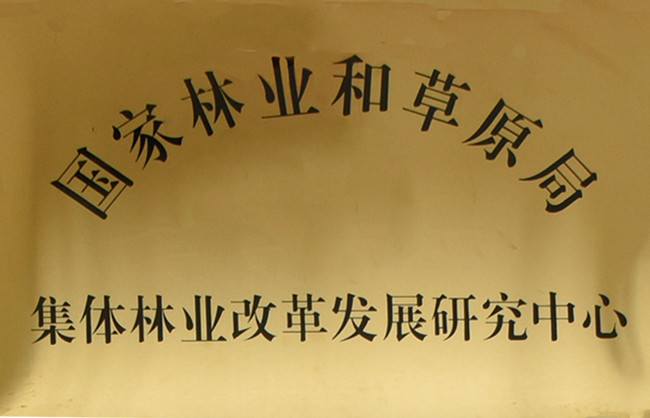 国家林业和草原局
集体林业改革发展研究中心